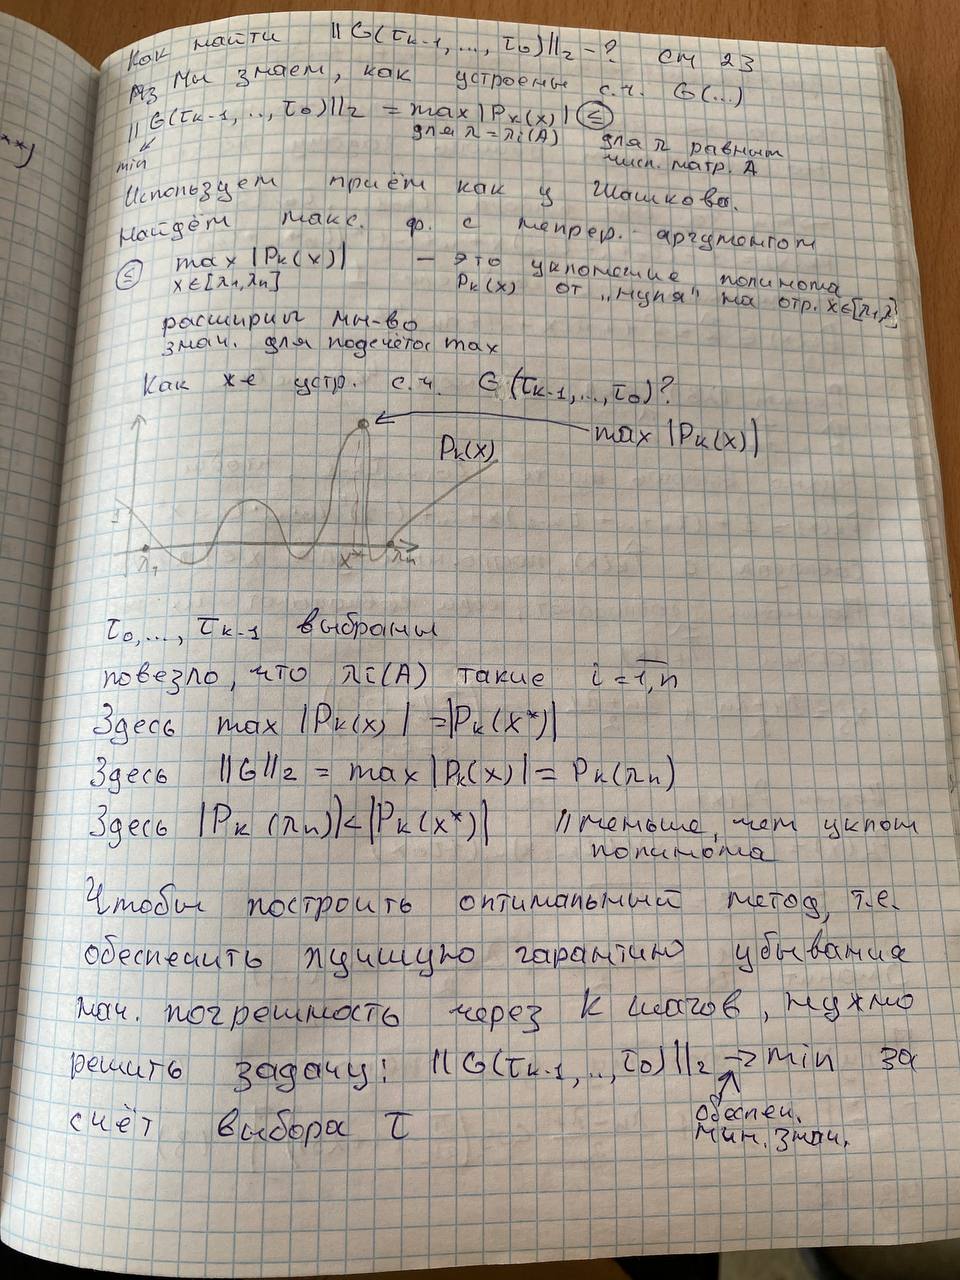 Как найти ||G(τk-1, ..., τ0)||2 - ? см 23
Мы знаем, как устроены с.ч. G(...)
||G(τk-1, .., τ0)||2 = max |Pk(x)| ≤
для λ = λi(A) для λ равным
min числ. матр. A
Используем приём как у Шашкова.
Найдём макс. ф. с непрер. аргументом
≤ max |Pk(x)| - это уклонение полинома
x∈[λ1,λn] Pk(x) от „нуля" на отр. x∈[λ1,λ]
расширим мн-во
знач. для подсчёта max
Как же устр. с.ч. G(τk-1, ..., τ0)?
max |Pk(x)|
Pk(x)
1
λ1 x* λn
τ0, ..., τk-1 выбраны
повезло, что λi(A) такие i = 1,n
Здесь max |Pk(x)| = |Pk(x*)|
Здесь ||G||2 = max |Pk(x)| = Pk(λn)
Здесь |Pk(λn)| < |Pk(x*)| // меньше, чем уклон
полинома
Чтобы построить оптимальный метод, т.е.
обеспечить лучшую гарантию убывания
нач. погрешность через K шагов, нужно
решить задачу: ||G(τk-1, .., τ0)||2 → min за
обеспеч.
счёт выбора τ
мин. знач.